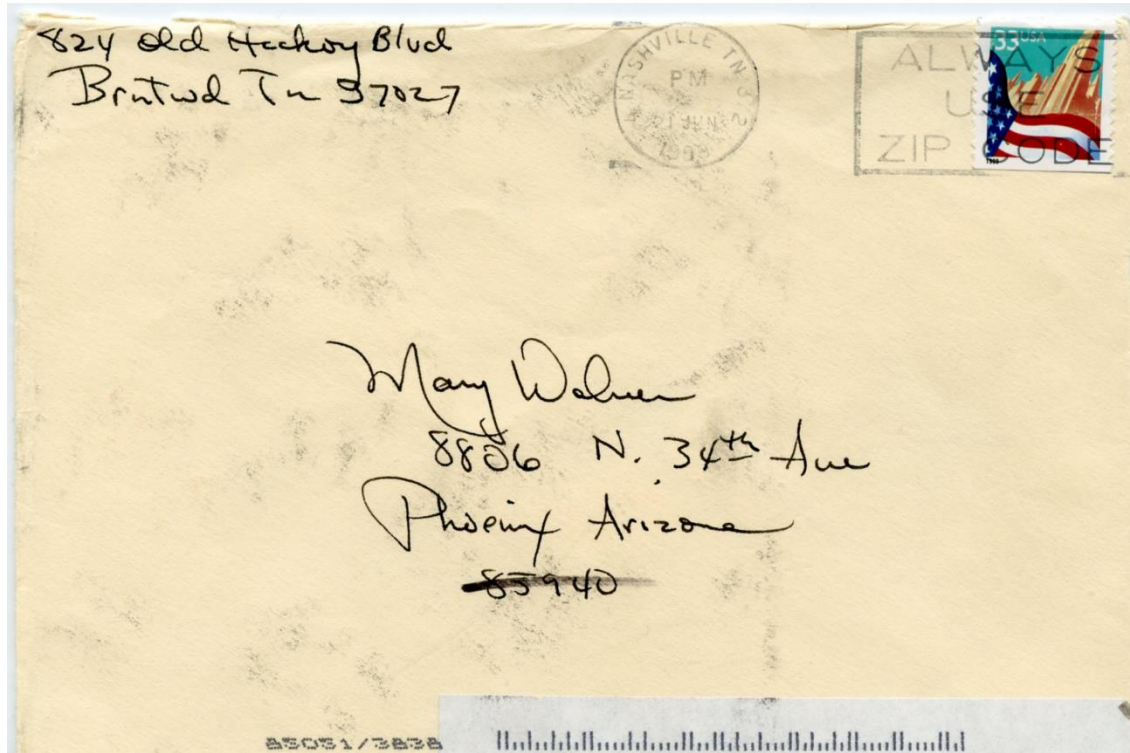 824 Old Hickory Blvd
Brntwd Tn 37027
NASHVILLE TN
PM
JUN
ALWAYS
USE
ZIP CODE
33 USA
1999
Mary
8806 N. 34th Ave
Phoenix Arizona
85940
85051/3838